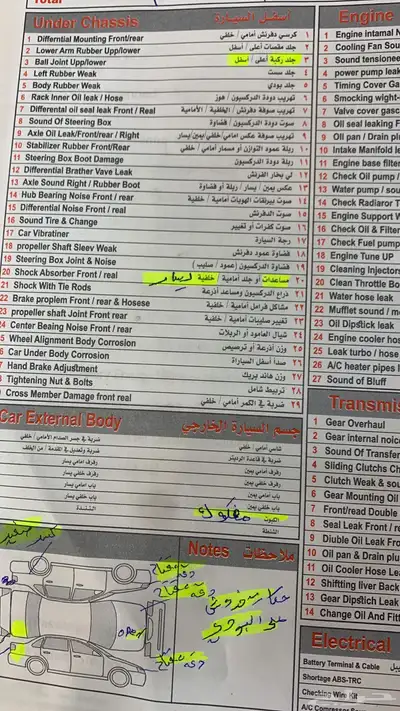 Total
Under Chassis أسفل السيارة
1 Differntial Mounting Front/rear كرسي دفرنش أمامي / خلفي ١
2 Lower Arm Rubber Upp/lower جلد مقصات أعلى / أسفل ٢
3 Ball Joint Upp/lower جلد ركبة أعلى / أسفل ٣
4 Left Rubber Weak جلد ست ٤
5 Body Rubber Weak جلد بودي ٥
6 Rack Inner Oil leak / Hose تهريب دودة الدركسيون / هوز ٦
7 Differental oil seal leak Front / Real تهريب صوفة الدفرنش / الخلفية / الأمامية ٧
8 Sound Of Steering Box صوت دودة الدركسيون / قضاوة ٨
9 Axle Oil Leak/Front/rear / Right تهريب صوفة عكس امامي/خلفي/يمين/يسار ٩
10 Stabilizer Rubber Front/Rear ربلة عمود التوازن أو مسمار أمامي / خلفي ١٠
11 Steering Box Boot Damage ربلة دودة الدركسيون ١١
12 Differential Brather Vave Leak لي بخار الفرنش ١٢
13 Axle Sound Right / Rubber Boot عكس يمين / يسار / ربلة أو قضاوة ١٣
14 Hub Bearing Noise Front / rear صوت بيرلقات الهوبات أمامية / خلفية ١٤
15 Differential Noise Front / real صوت الدفرنش ١٥
16 Sound Tire & Change صوت كفرات أو تغيير ١٦
17 Car Vibratiner رجة السيارة ١٧
18 propeller Shaft Sleev Weak قضاوة عمود دفرنش ١٨
19 Steering Box Joint & Noise قضاوة الدركسيون (عمود / صليب) ١٩
20 Shock Absorber Front / real مساعدات أو جلد أمامية / خلفية يسار ٢٠
21 Shock With Tie Rods ذراع الدركسيون ومساعد أذرعة ٢١
22 Brake proplem Front / rear & Hosese مشاكل فرامل أمامية / خلفية ٢٢
23 propeller shaft Joint Front rear تغيير صليبات أمامية / خلفية ٢٣
24 Center Beaing Noise Front / rear شيال العامود أو الربلات ٢٤
25 Wheel Alignment Body Corrosion وزن أذرعة أو ترصيص ٢٥
26 Car Under Body Corrosion صدأ أسفل السيارة ٢٦
27 Hand Brake Adjustment وزن هاند بريك ٢٧
Tightening Nut & Bolts تربيط شامل ٢٨
Cross Member Damage front real ضربة في الكمر أمامي / خلفي ٢٩
Car External Body جسم السيارة الخارجي
ضربة في جسر الصدام الأمامي / خلفي شاسي أمامي / خلفي
ضربة وتعديل في المقدمة / من الخلف ضربة في قاعدة الرديتر
رفرف أمامي يسار رفرف أمامي يمين
رفرف خلفي يسار رفرف خلفي يمين
باب أمامي يسار باب أمامي يمين
باب خلفي يسار باب خلفي يمين
الشنطة الكبوت مفكوك
الشنطة
Notes ملاحظات
على البودي
Engine
1 Engine intamal N
2 Cooling Fan Sou
3 Sound tensionee
4 power pump leak
5 Timing Cover Ga
6 Smocking wight-
7 Valve cover gasc
8 Oil seal leaking F
9 Oil pan / Drain plu
10 Intake Manifold le
11 Engine base filter
12 Check Oil pump /
13 Water pump / sou
14 Check Radiaror T
15 Engine Support W
16 Check Oil & Oil F
17 Check Fuel pump
18 Engine Tune UP
19 Cleaning Injectors
20 Clean Throttle Bo
21 Water hose leak
22 Muffler sound / m
23 Oil Dipstick leak
24 Engine cooler hos
25 Leak turbo / hose
26 A/C heater pipes l
27 Sound of Bluff
Transmis
1 Gear Overhaul
2 Gear internal noice
3 Sound Of Transfer
4 Sliding Clutchs Ch
5 Clutch Weak & sou
6 Gear Mounting Oil
7 Front/read Double
8 Seal Front Leak / r
9 Diuble Oil Leak Fro
10 Oil pan & Drain plu
11 Oil Cooler Hose Lea
12 Shiftting liver Back
13 Gear Dipstick Leak
14 Change Oil And Fitt
Electrical
Battery Terminal & Cable
Shortage ABS-TRC
Checking Wire Kit
A/C Comressor